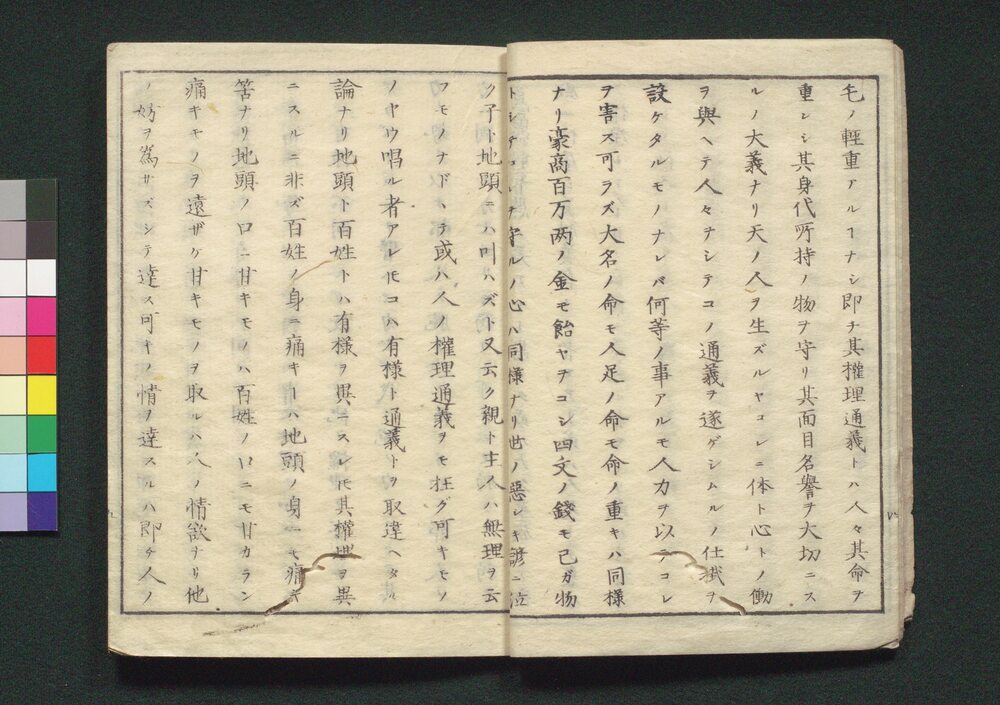 毛ノ輕重アルヿナシ即チ其權理通義トハ人々其命ヲ
重ンシ其身代所持ノ物ヲ守リ其面目名譽ヲ大切ニス
ルノ大義ナリ天ノ人ヲ生ズルヤコレニ体ト心トノ働
ヲ與ヘテ人々ヲシテコノ通義ヲ遂ゲシムルノ仕掛ヲ
設ケタルモノナレバ何等ノ事アルモ人力ヲ以テコレ
ヲ害ス可ラズ大名ノ命モ人足ノ命モ命ノ重キハ同様
ナリ豪商百万两ノ金モ飴ヤヲコシ四文ノ錢モ己ガ物
トシテコレヲ守ルノ心ハ同様ナリ世ノ惡シキ諺ニ泣
ク子ト地頭ニハ叶ハズト又云ク親ト主人ハ無理ヲ云
フモノナドヽテ或ハ人ノ權理通義ヲモ枉グ可キモノ
ノヤウ唱ル者アレ𪜈コハ有様ト通義トヲ取違ヘタル
論ナリ地頭ト百姓トハ有様ヲ異ニスレ𪜈其權理ヲ異
ニスルニ非ズ百姓ノ身ニ痛キヿハ地頭ノ身ニモ痛キ
筈ナリ地頭ノ口ニ甘キモノハ百姓ノ口ニモ甘カラン
痛キモノヲ遠ザケ甘キモノヲ取ルハ人ノ情欲ナリ他
ノ妨ヲ為サズシテ達ス可キノ情ヲ達スルハ即チ人ノ